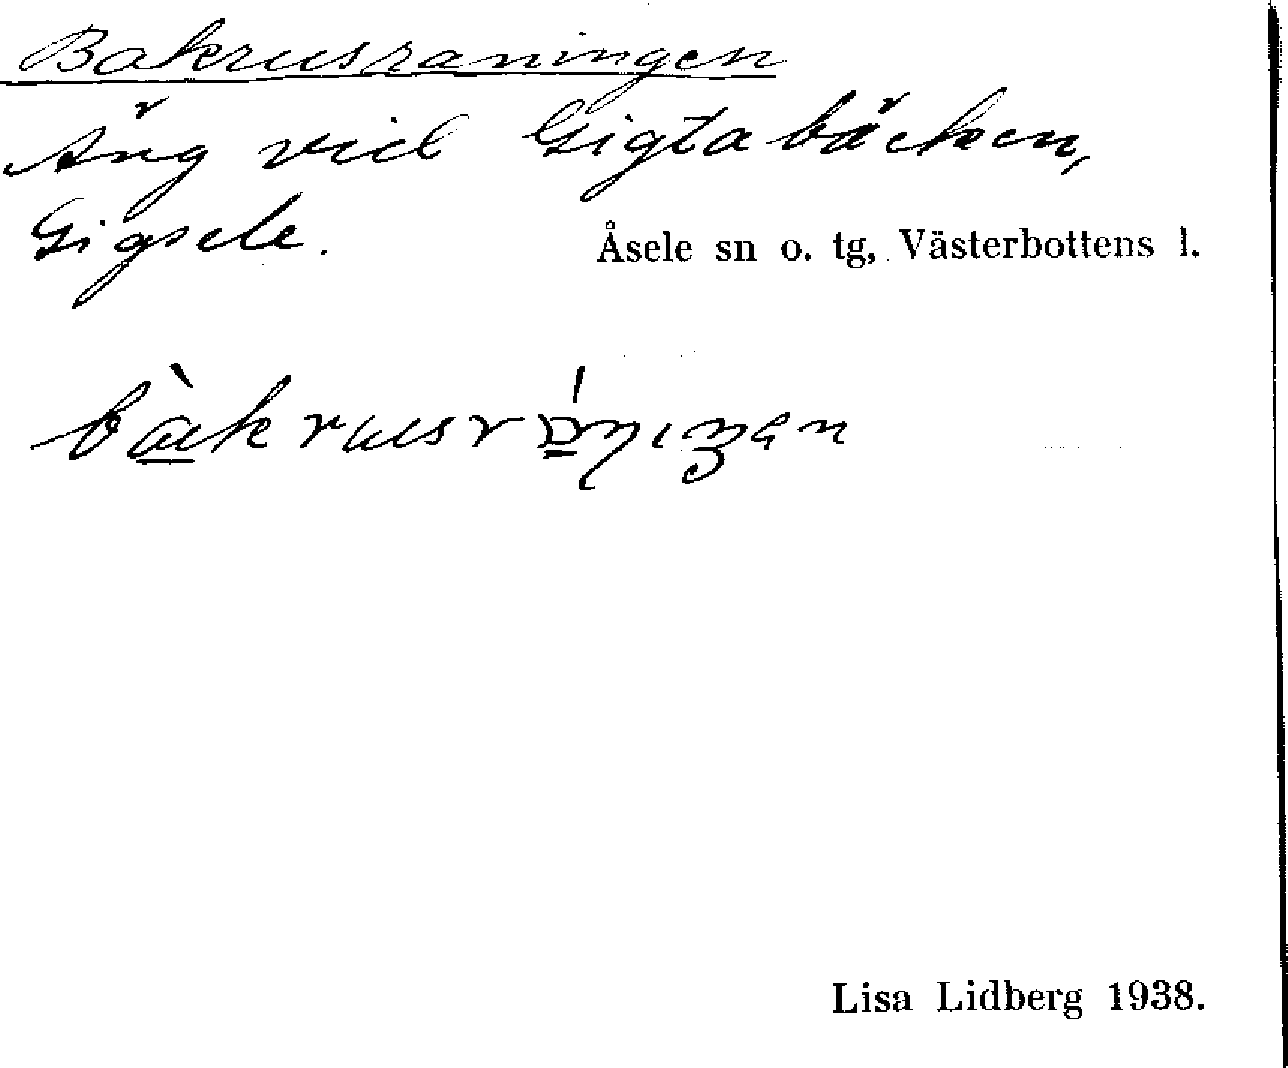 Bakrusraningen
Äng vid Gigtabäcken,
Gigsele.
Åsele sn o. tg, Västerbottens l.
Lisa Lidberg 1938.